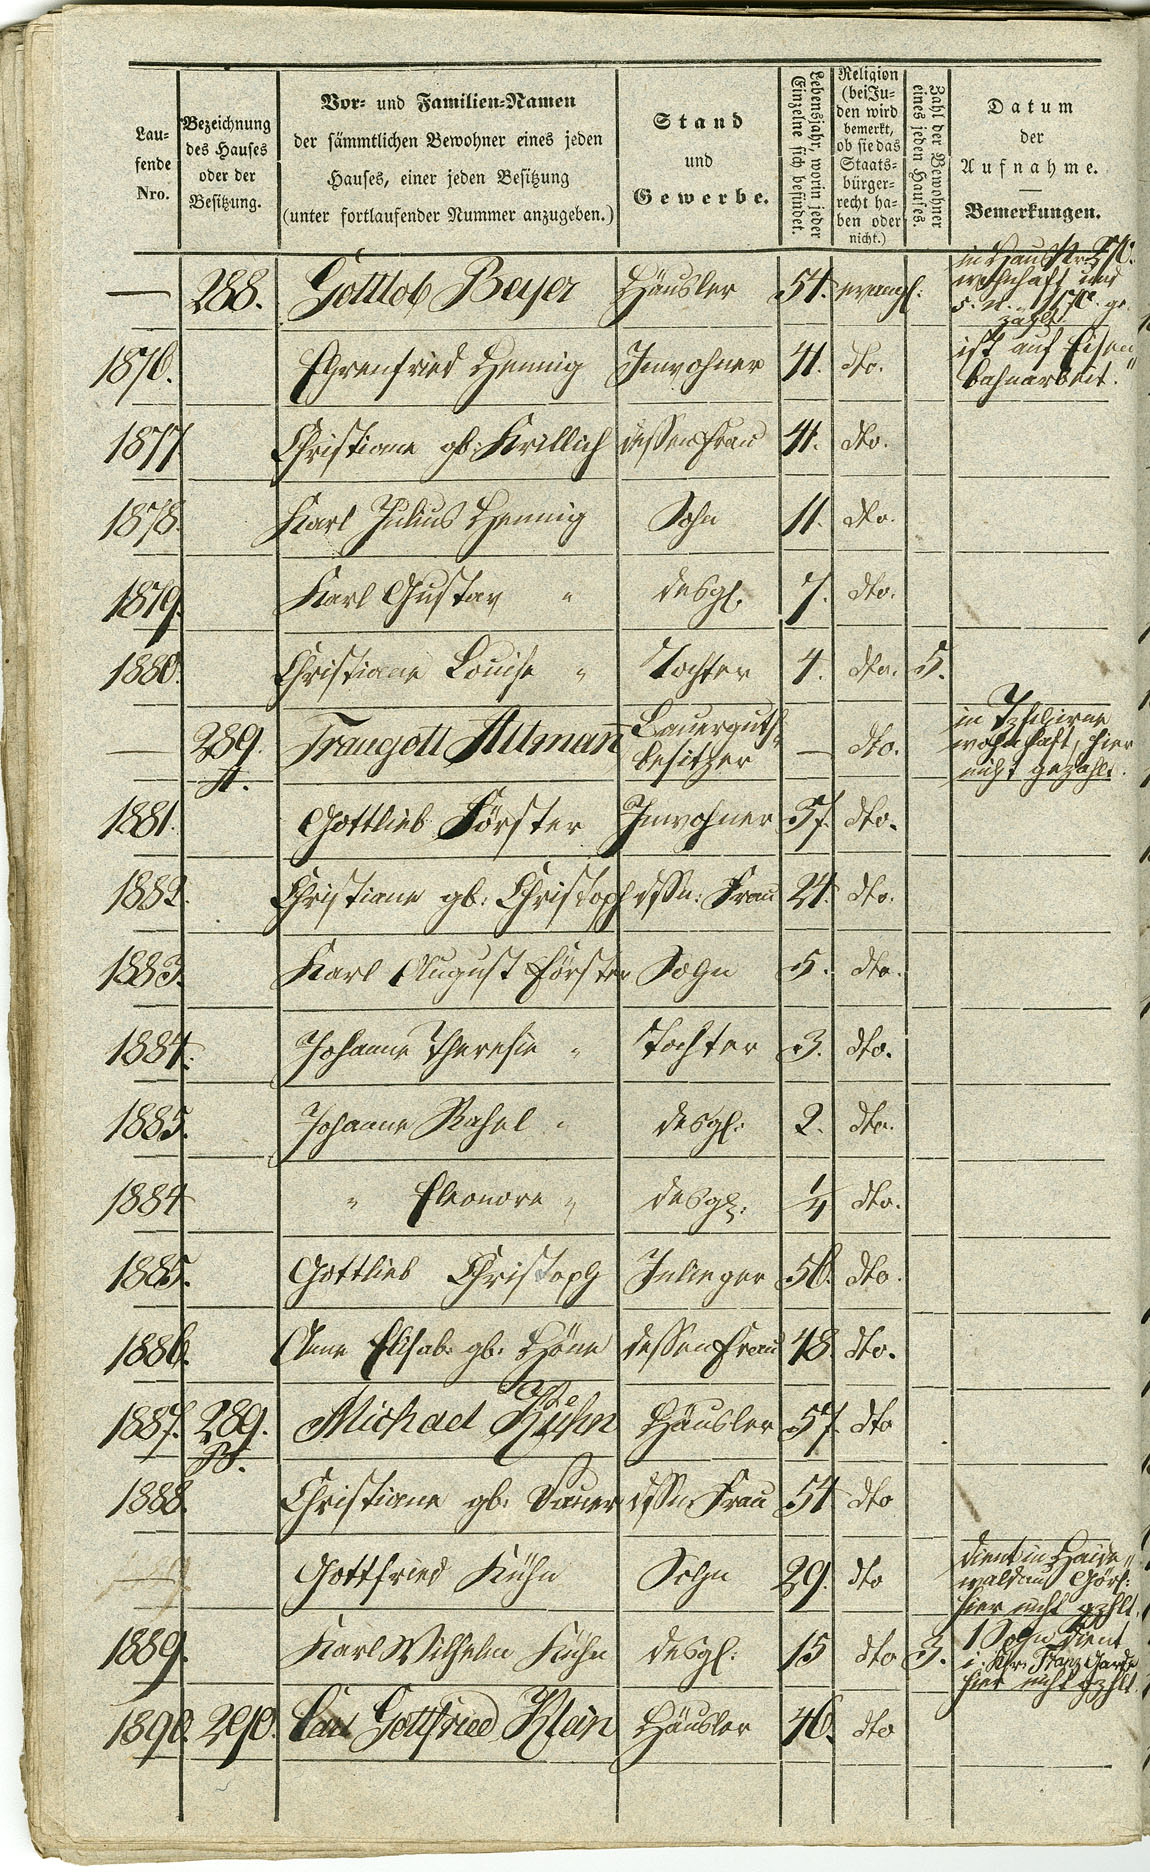 Laufende Nro.
Bezeichnung des Hauses oder der Besitzung.
Vor- und Familien-Namen
der sämmtlichen Bewohner eines jeden
Hauses, einer jeden Besitzung
(unter fortlaufender Nummer anzugeben.)
Stand
und
Gewerbe.
Lebensjahr, worin jeder Einzelne sich befindet.
Religion (bei Juden wird bemerkt, ob sie das Staatsbürgerrecht haben oder nicht.)
Zahl der Bewohner eines jeden Hauses.
Datum
der
Aufnahme.
Bemerkungen.
— 288. Gottlob Beyer Häusler 51. evangl. in Haus Nr. wohnhaft und gezählt
1876. Ehrenfried Hennig Inwohner 41. dto. ist auf Eisenbahnarbeit.
1877 Christiane gb: Krillich dessen Frau 41. dto.
1878. Karl Julius Hennig Sohn 11. dto.
1879. Karl Gustav " desgl. 7. dto.
1880. Christiane Louise " Tochter 4. dto. 5.
— 289. A. Traugott Altmann Bauerguths besitzer — dto. in Tzschirne wohnhaft, hier nicht gezählt.
1881. Gottlieb Förster Inwohner 37. dto.
1882. Christiane gb: Christoph dssn: Frau 24. dto.
1883. Karl August Förster Sohn 5. dto.
1884. Johanne Theresie " Tochter 3. dto.
1885. Johanne Rahel " desgl: 2. dto.
1884 " Eleonore " desgl: 1/4 dto.
1885. Gottlieb Christoph Inlieger 56. dto.
1886. Anne Elisab: gb: Höne dessen Frau 48. dto.
1887. 289. B. Michael Kühn Häusler 57. dto
1888. Christiane gb: Bauer dssn Frau 54 dto
— Gottfried Kühn Sohn 29. dto dient in Haidewaldau Görl: hier nicht gzhlt.
1889. Karl Wilhelm Kühn desgl: 15 dto 3. 1 Sohn dient i. Franz Garde hier nicht gzhlt
1890. 290. Carl Gottfried Klein Häusler 46. dto